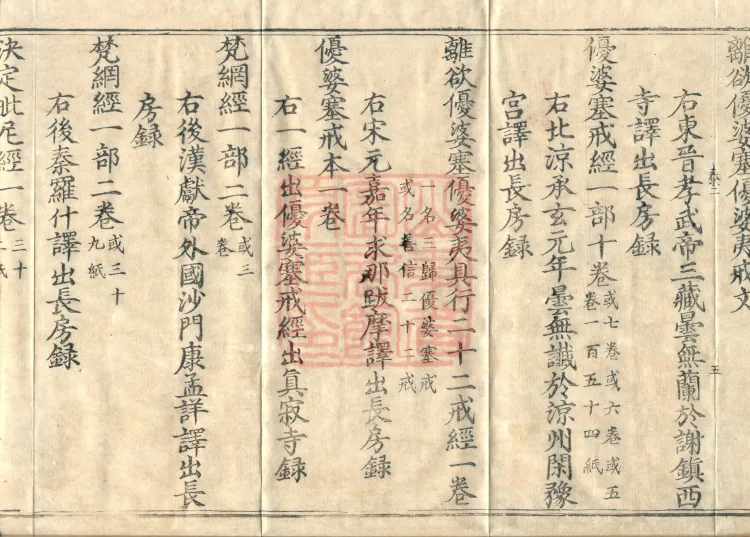 離欲優婆塞優婆夷戒文
右東晉孝武帝三藏曇無蘭於謝鎮西
寺譯出長房録
優婆塞戒經一部十卷或七卷或六卷或五
卷一百五十四紙
右北涼承玄元年曇無讖於涼州閑豫
宮譯出長房録
離欲優婆塞優婆夷具行二十二戒經一卷
一名三歸優婆塞戒
或名善信二十二戒
右宋元嘉年求那跋摩譯出長房録
優婆塞戒本一卷
右一經出優婆塞戒經出眞寂寺録
梵網經一部二卷或三
卷
右後漢獻帝外國沙門康孟詳譯出長
房録
梵網經一部二卷或三十
九紙
右後秦羅什譯出長房録
決定毗尼經一卷三十
二紙